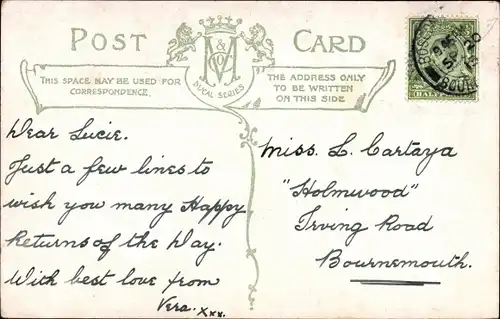 POST CARD
M & Co
DUCAL SERIES
THIS SPACE MAY BE USED FOR
CORRESPONDENCE.
THE ADDRESS ONLY
TO BE WRITTEN
ON THIS SIDE
Dear Lucie.
Just a few lines to
wish you many Happy
Returns of the Day.
With best love from
Vera. xxx.
Miss. L. Cartaya
"Holmwood"
Irving Road
Bournemouth.